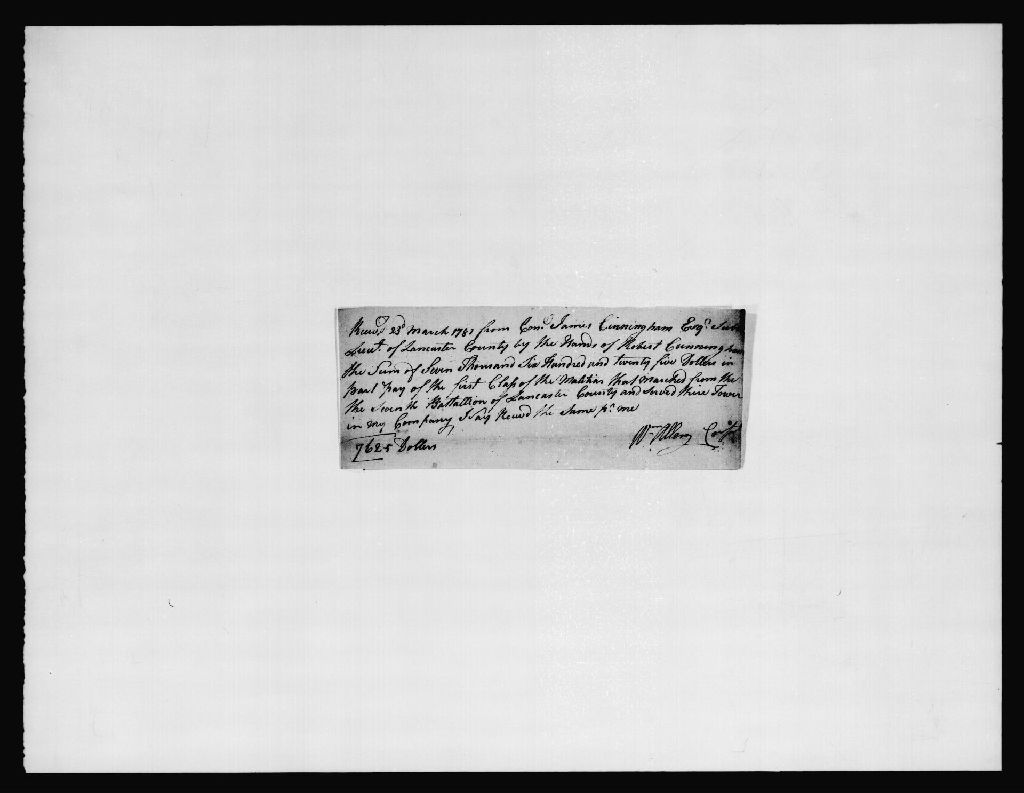 Receivd 23d March 1781 from Conl James Cunningham Esqr Sub
Lieut. of Lancaster County by the Hands of Robert Cunningham
the Sum of Seven Thousand Six Hundred and twenty five Dollers in
part pay of the first Class of the Malitia that marched from the
the Seventh Battallion of Lancaster County and Served thire Tower
in my Company I say Receivd the Same pr me
7625 Dollers
Wm Allen Capt